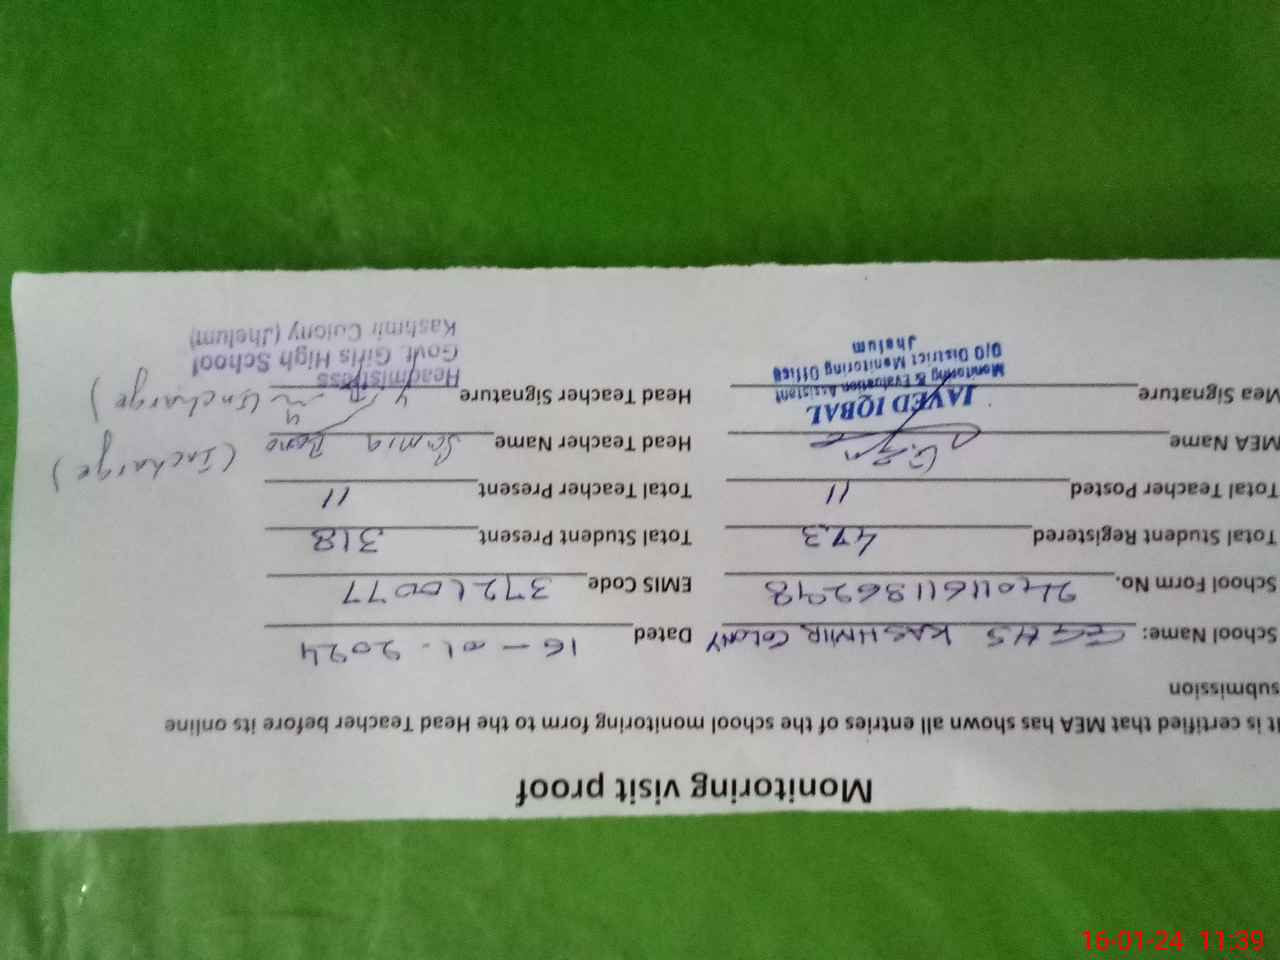 Monitoring visit proof
It is certified that MEA has shown all entries of the school monitoring form to the Head Teacher before its online
submission
School Name: GGHS KASHMIR COLONY Dated 16-01-2024
School Form No. EMIS Code 37210077
Total Student Registered 473 Total Student Present 318
Total Teacher Posted 11 Total Teacher Present 11
MEA Name Head Teacher Name Samia Bano (Incharge)
Mea Signature Head Teacher Signature (Incharge)
JAVED IQBAL
Monitoring & Evaluation Assistant
O/O District Monitoring Office
Jhelum
Headmistress
Govt. Girls High School
Kashmir Colony (Jhelum)
16-01-24 11:39